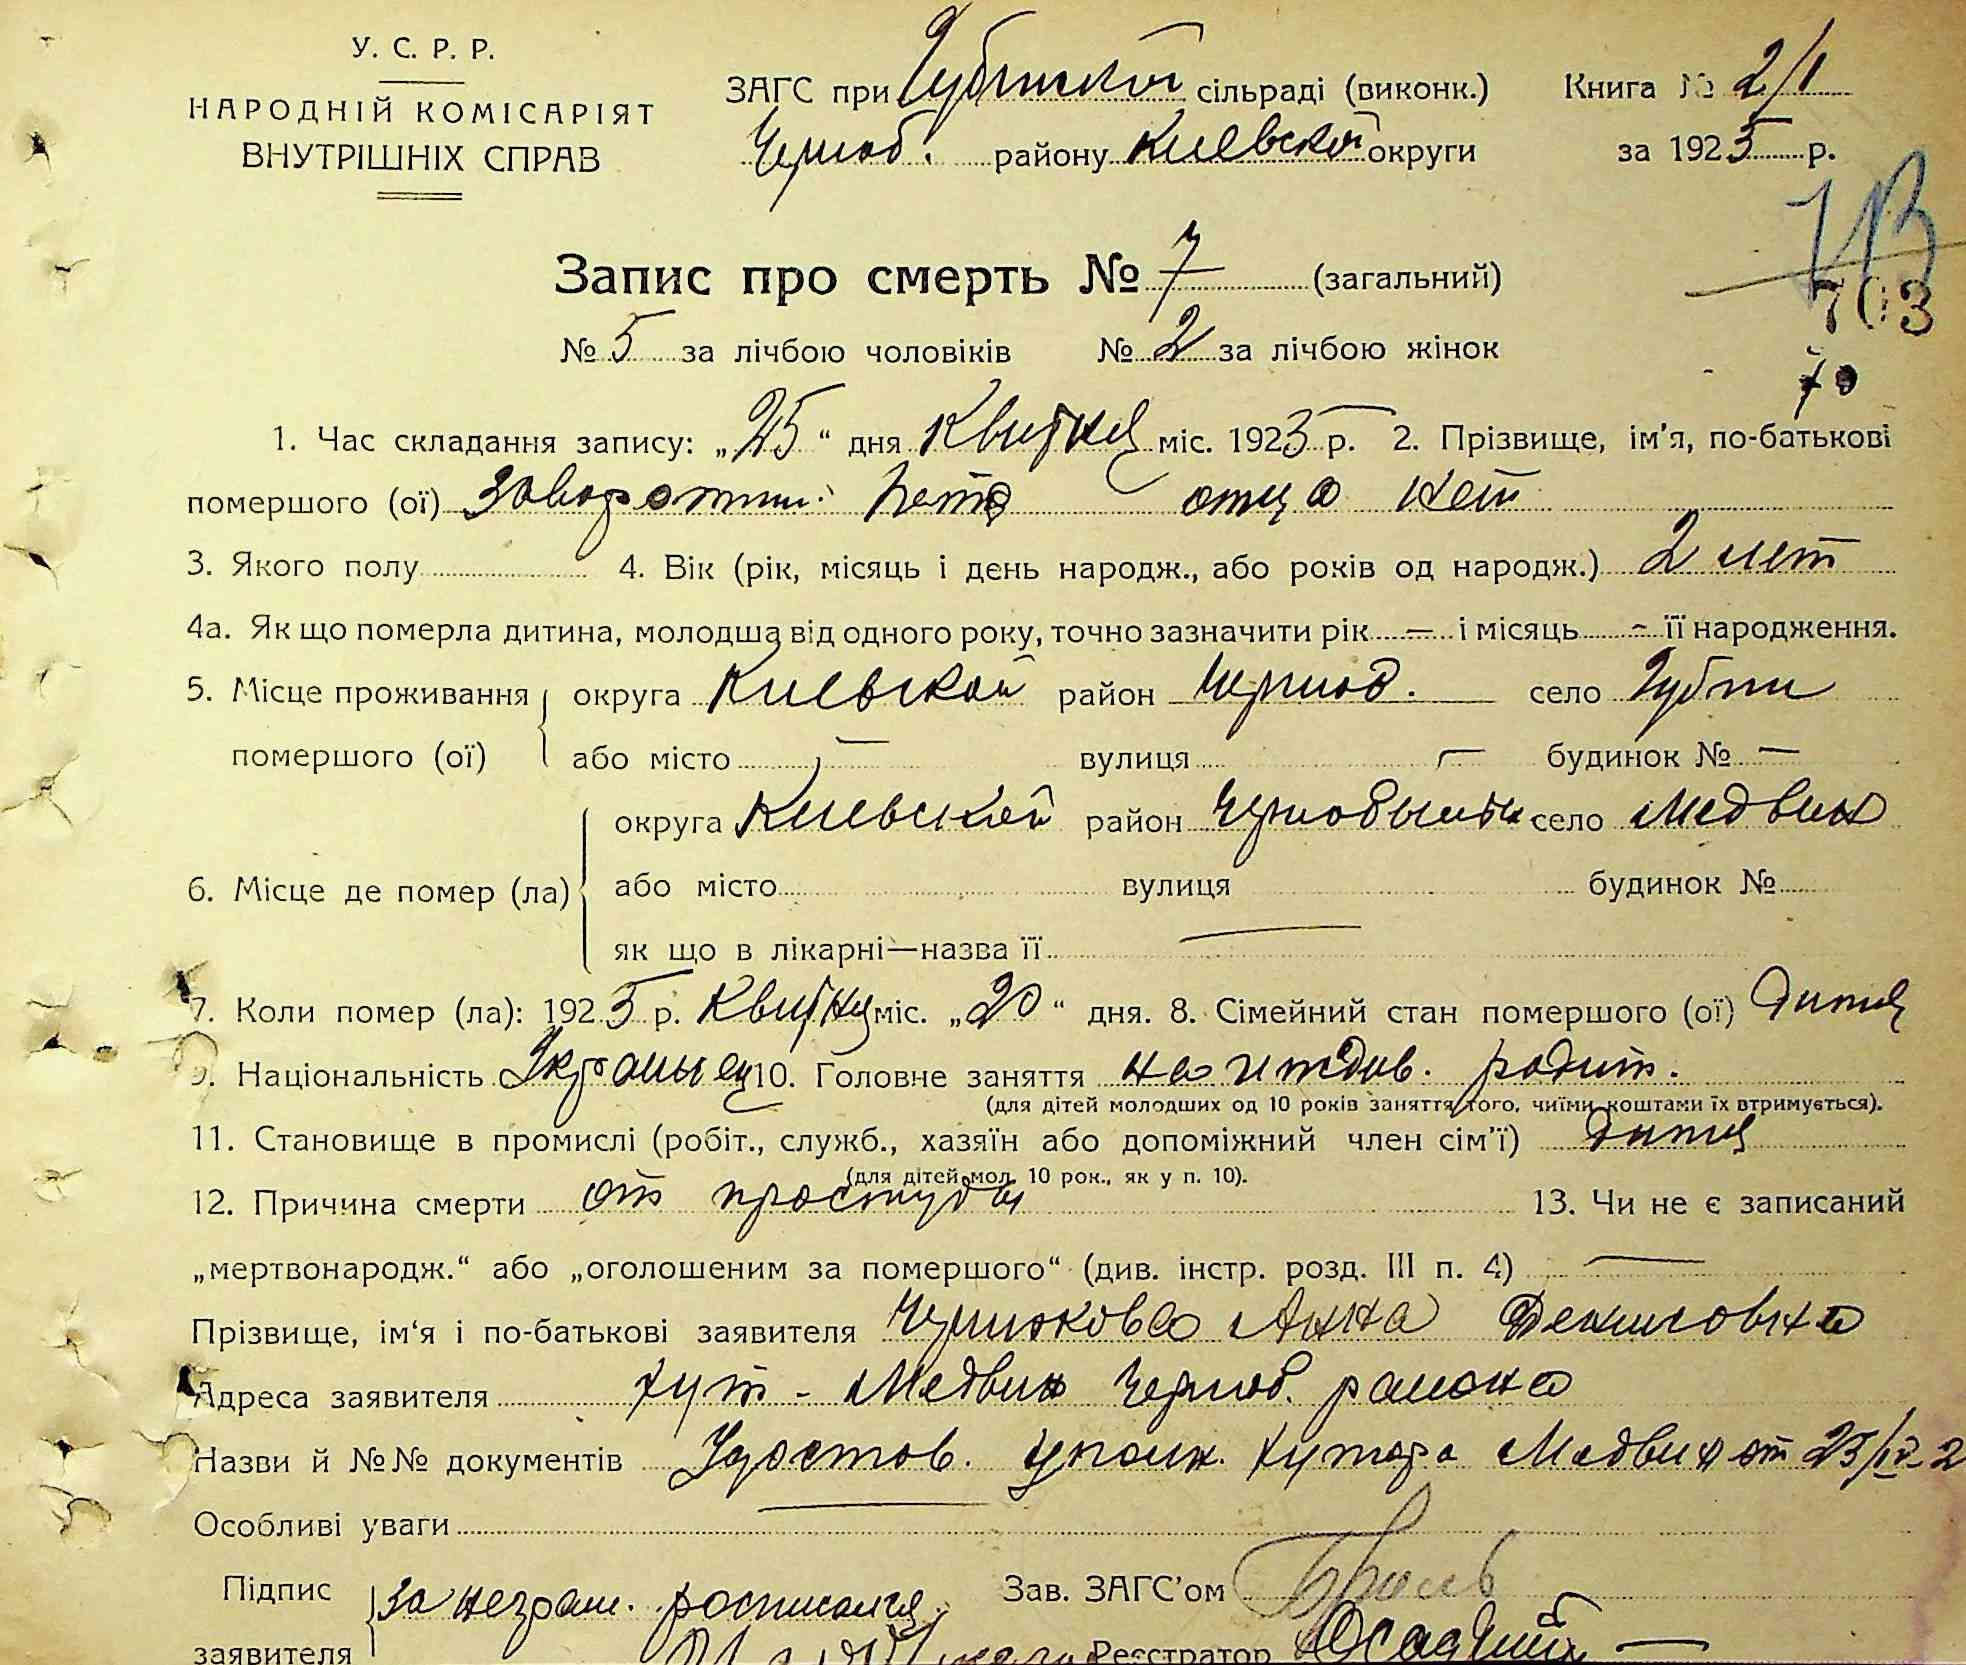 У. С. Р. Р.
НАРОДНІЙ КОМІСАРІЯТ
ВНУТРІШНІХ СПРАВ
ЗАГС при сільраді (виконк.)
Черноб. району Киевской округи
Книга № 2/1
за 1925 р.
703
70
Запис про смерть № 7 (загальний)
№ 5 за лічбою чоловіків № 2 за лічбою жінок
1. Час складання запису: „25“ дня Квитня міс. 1925 р. 2. Прізвище, ім'я, по-батькові
помершого (ої) отца нет
3. Якого полу 4. Вік (рік, місяць і день народж., або років од народж.) 2 лет
4а. Як що померла дитина, молодша від одного року, точно зазначити рік — і місяць - її народження.
5. Місце проживання округа Киевской район Черноб. село Губин
помершого (ої) або місто — вулиця — будинок № —
округа Киевской район село Медвин
6. Місце де помер (ла) або місто вулиця будинок №
як що в лікарні—назва її —
7. Коли помер (ла): 1925 р. Квитня міс. „20“ дня. 8. Сімейний стан помершого (ої) дитя
9. Національність Украинец 10. Головне заняття на иждив. родит.
(для дітей молодших од 10 років заняття того, чиїми коштами їх втримується).
11. Становище в промислі (робіт., служб., хазяїн або допоміжний член сім'ї) дитя
(для дітей мол. 10 рок., як у п. 10).
12. Причина смерти от простуды 13. Чи не є записаний
„мертвонародж.“ або „оголошеним за помершого“ (див. інстр. розд. III п. 4) —
Прізвище, ім'я і по-батькові заявителя Анна Денисовна
Адреса заявителя хут - Медвин Черноб. района
Назви й №№ документів Удостов. уполн. хутора Медвин от 23/IV 2
Особливі уваги —
Підпис За неграм. росписался Зав. ЗАГС'ом
заявителя Реєстратор Осадчий —